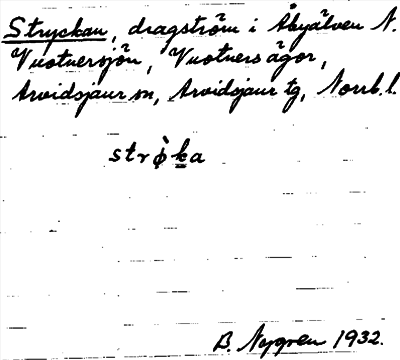 Stryckan, dragström i Åbyälven N.
Vuotnersjön, Vuotners ägor,
Arvidsjaur sn, Arvidsjaur tg, Norrb. l.
strø̀ka
B. Nygren 1932.